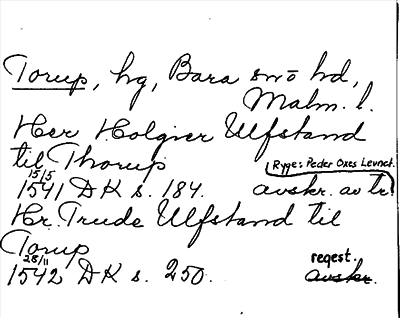 Torup, hg, Bara snō hd,
Malm. l.
Her Holgier Ulfstand
til Thorup
Ryge: Peder Oxes Levnet.
15/5
1541 DK s. 184. avskr. av tr.
Hr. Trude Ulfstand til
Torup
28/11
1542 DK s. 250. regest.
avskr.